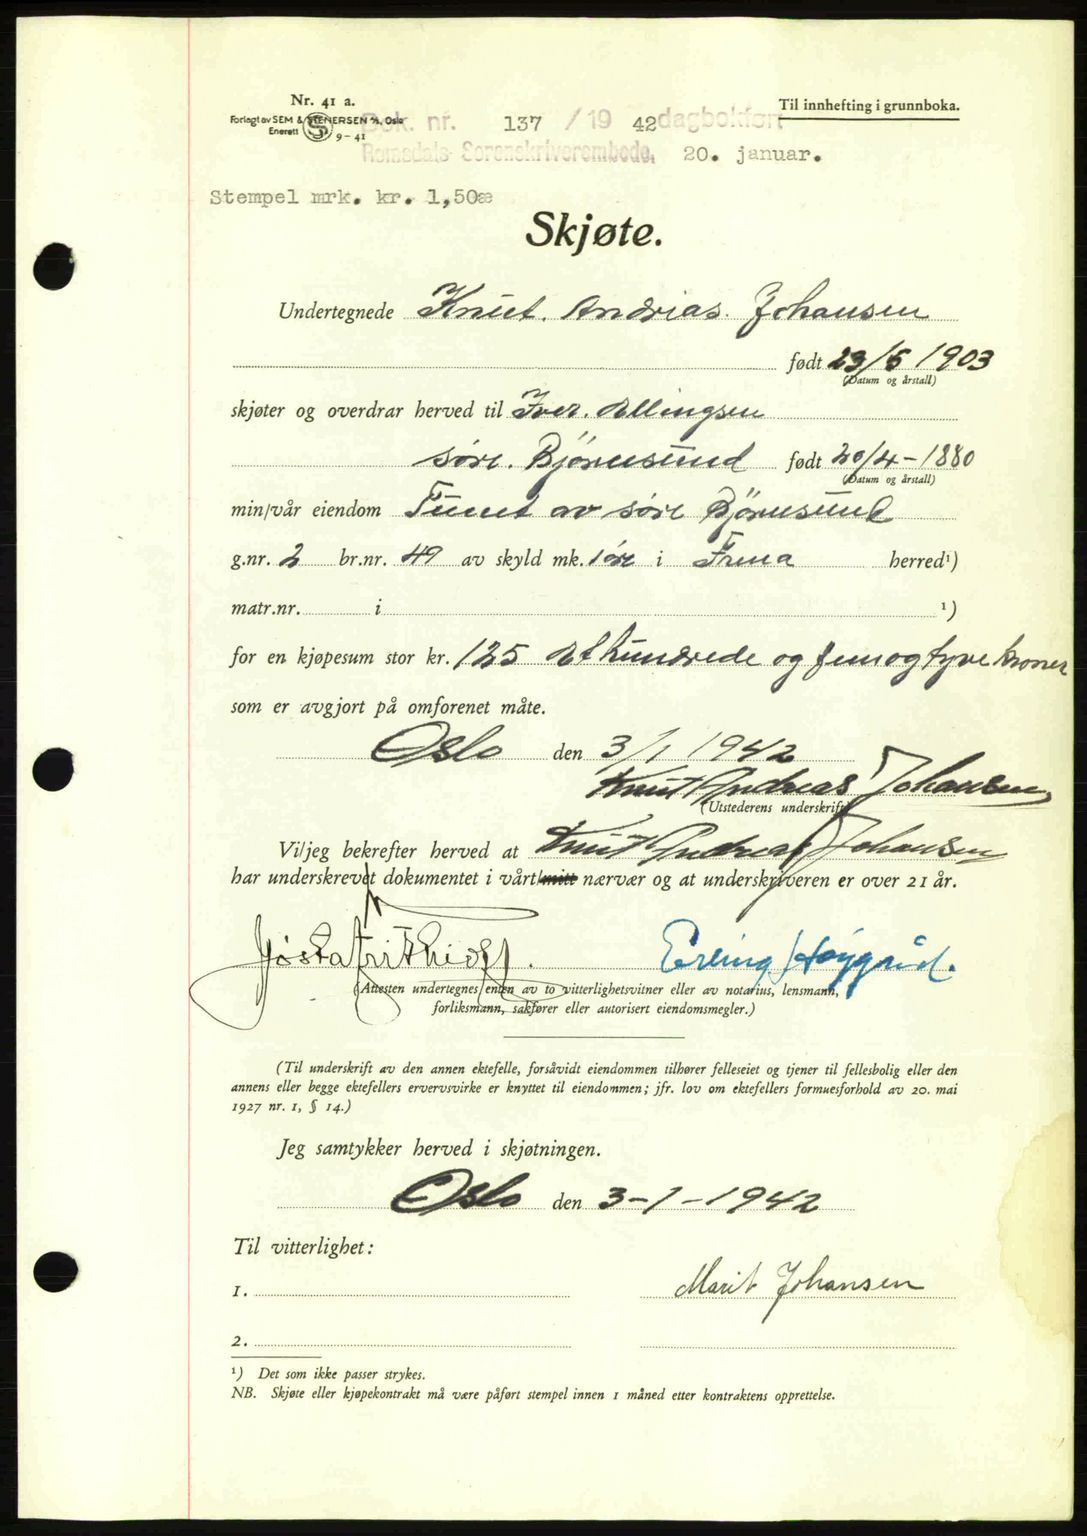 Nr. 41 a.
Forlagt av SEM & STENERSEN A/S, Oslo
Enerett 9-41
Til innhefting i grunnboka.
Dok. nr. 137 / 19 42 dagbokført
Romsdals Sorenskriverembede, 20. januar.
Stempel mrk. kr. 1,50
Skjøte.
Undertegnede Knut. Andrias. Johansen
født 23/5 1903
(Datum og årstall)
skjøter og overdrar herved til Iver. Ellingsen
søre. Bjørnsund født 20/4-1880
(Datum og årstall)
min/vår eiendom av søre Bjørnsund
g.nr. 2 br.nr. 49 av skyld mk. 1 øre i Frena herred¹)
matr.nr. i ¹)
for en kjøpesum stor kr. 125 Et hundrede og femogtyve kroner
som er avgjort på omforenet måte.
Oslo den 3/1 1942
Knut Andreas Johansen
(Utstederens underskrift)
Vi/jeg bekrefter herved at Knut Andreas Johansen
har underskrevet dokumentet i vårt/mitt nærvær og at underskriveren er over 21 år.
Erling Høygård.
(Attesten undertegnes enten av to vitterlighetsvitner eller av notarius, lensmann,
forliksmann, sakfører eller autorisert eiendomsmegler.)
(Til underskrift av den annen ektefelle, forsåvidt eiendommen tilhører felleseiet og tjener til fellesbolig eller den
annens eller begge ektefellers ervervsvirke er knyttet til eiendommen; jfr. lov om ektefellers formuesforhold av 20. mai
1927 nr. 1, § 14.)
Jeg samtykker herved i skjøtningen.
Oslo den 3-1-1942
Til vitterlighet:
1. Marit Johansen
2.
¹) Det som ikke passer strykes.
NB. Skjøte eller kjøpekontrakt må være påført stempel innen 1 måned etter kontraktens opprettelse.